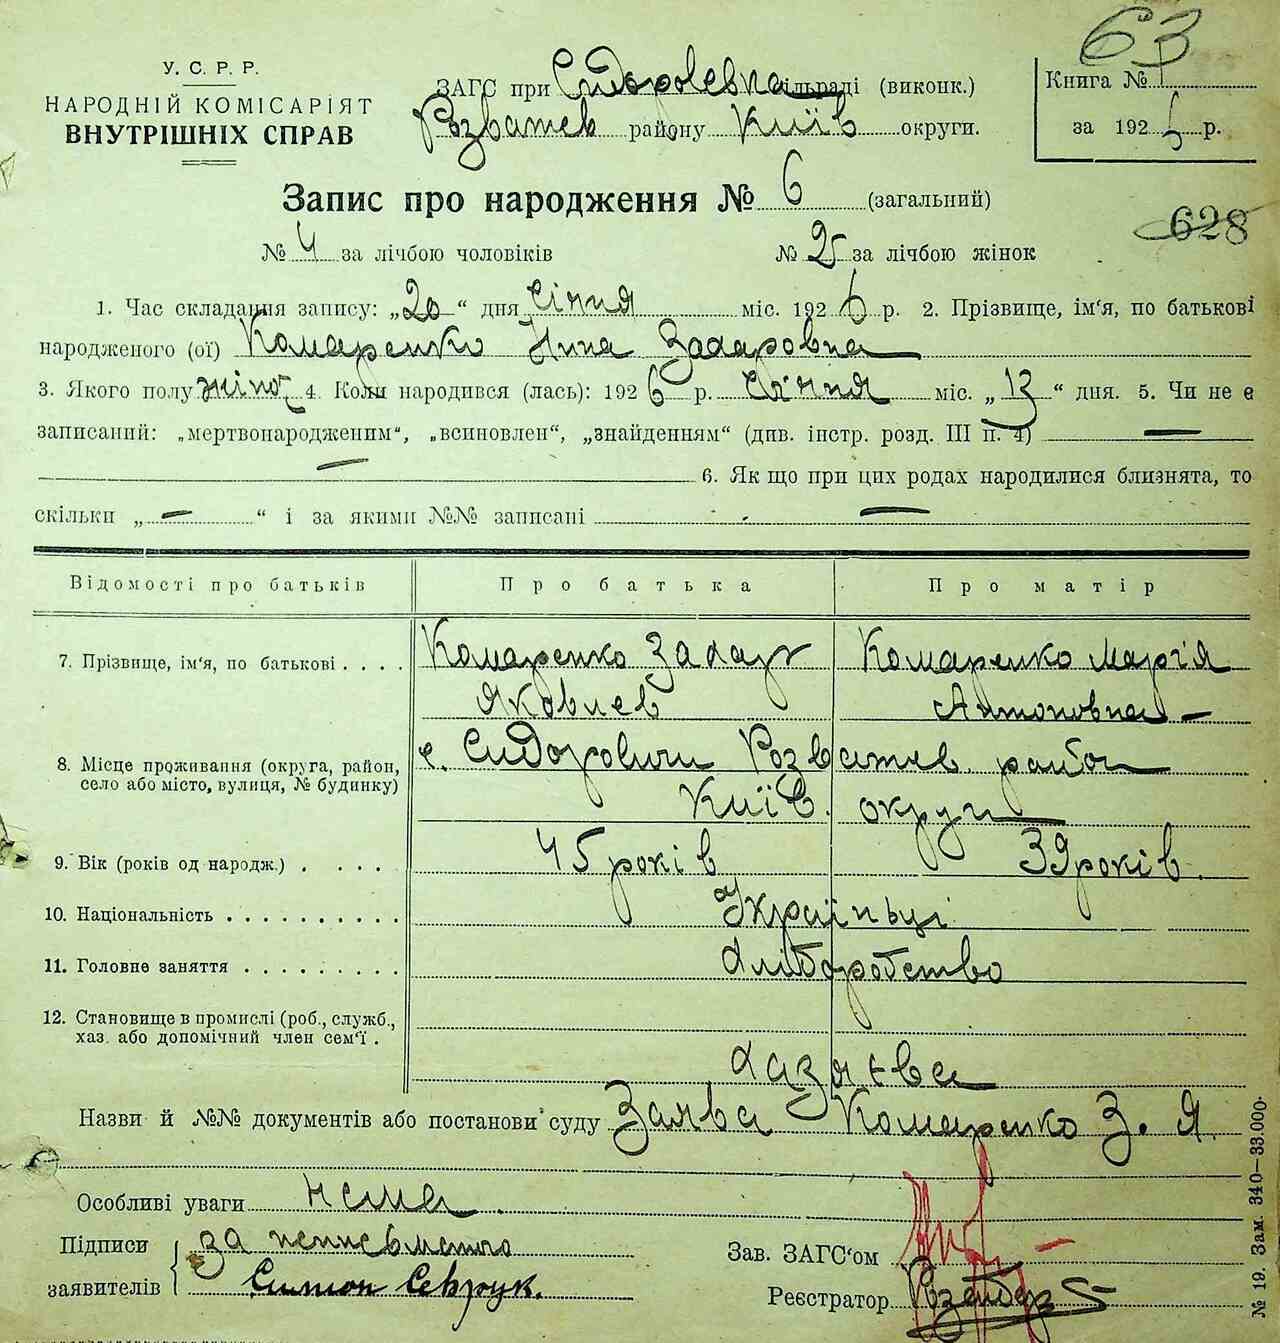 63
У. С. Р. Р.
НАРОДНІЙ КОМІСАРІЯТ
ВНУТРІШНІХ СПРАВ
ЗАГС при Сидоровській сільраді (виконк.)
Розватев району Київ округи.
Книга №
за 192 р.
Запис про народження № 6 (загальний)
628
№ 4 за лічбою чоловіків № 2 за лічбою жінок
1. Час складання запису: „20“ дня Січня міс. 1926 р. 2. Прізвище, ім‘я, по батькові
народженого (ої) Комаренко Нина Захаровна
3. Якого полу жіноч 4. Коли народився (лась): 1926 р. Січня міс. „13“ дня. 5. Чи не є
записаний: „мертвонародженим“, „всиновлен“, „знайденням“ (див. інстр. розд. III п. 4) —
— 6. Як що при цих родах народилися близнята, то
скільки „—“ і за якими №№ записані —
Відомості про батьків Про батька Про матір
7. Прізвище, ім‘я, по батькові . . . . Комаренко Захар Комаренко Марія
Яковлев Антоновна —
8. Місце проживання (округа, район, с. Сидоровичи Розватев район
село або місто, вулиця, № будинку) Київ. округи
9. Вік (років од народж.) . . . . . 45 років 39 років.
10. Національність . . . . . . . . . . Україньці
11. Головне заняття . . . . . . . . . Хліборобство
12. Становище в промислі (роб., служб.,
хаз. або допомічний член сем‘ї .
Хазяева
Назви й №№ документів або постанови суду Заява Комаренко З. Я.
Особливі уваги нема
Підписи за неписьмено
заявителів Симон Севрук.
Зав. ЗАГС‘ом
Реєстратор
№ 19. Зам. 340—33.000.